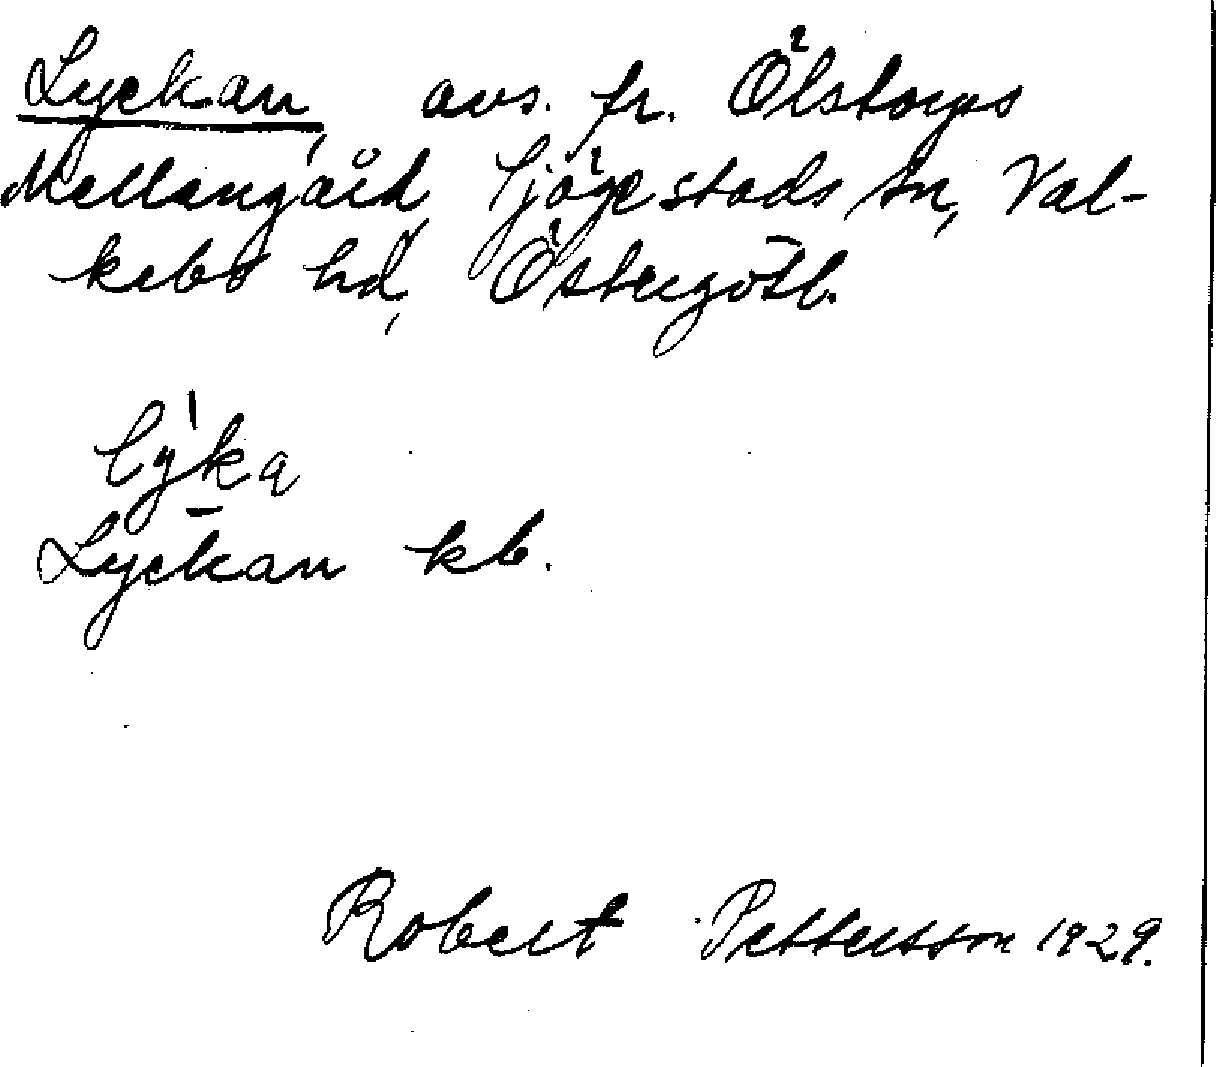 Lyckan, avs. fr. Ölstorps
Mellangård, Gjögestads sn, Val-
kebo hd, Östergötl.
lỳka
Lyckan kb.
Robert Pettersson 1929.